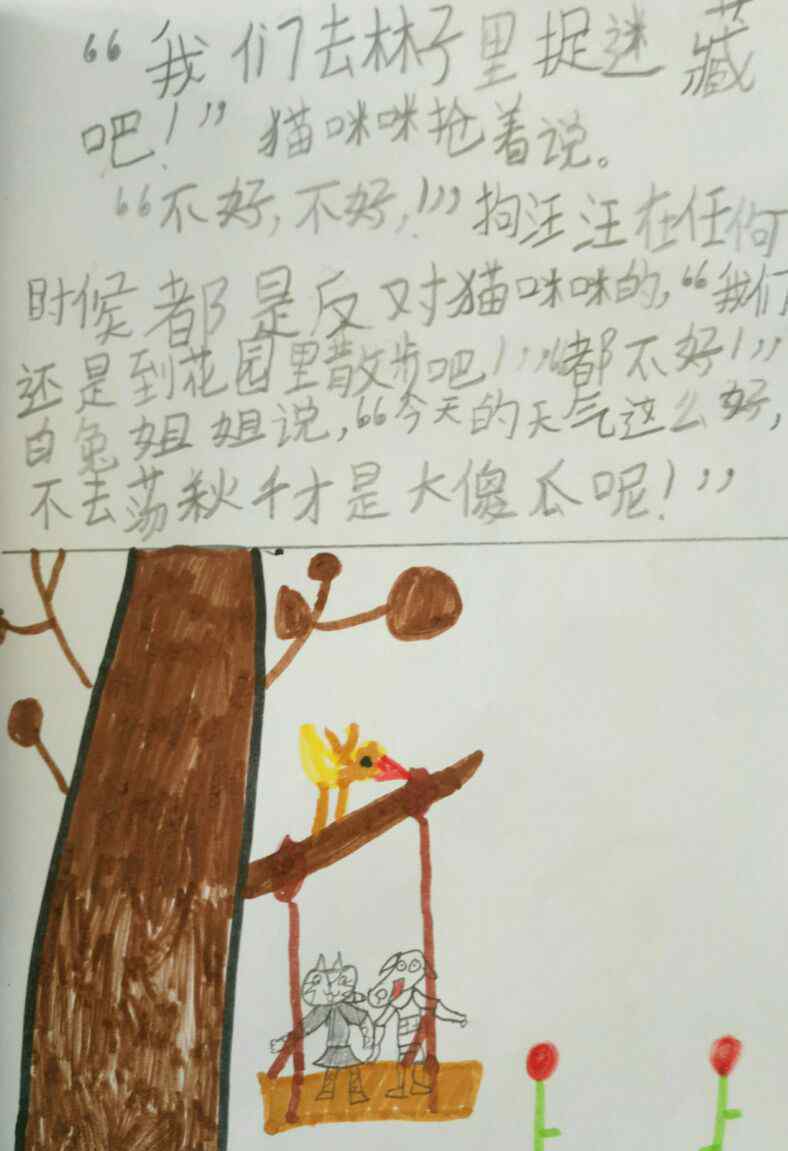 “我们去林子里捉迷藏
吧！”猫咪咪抢着说。
“不好,不好,！”拘汪汪在任何
时候都是反对猫咪咪的,“我们
还是到花园里散步吧！”“都不好！”
白兔姐姐说,“今天的天气这么好,
不去荡秋千才是大傻瓜呢！”